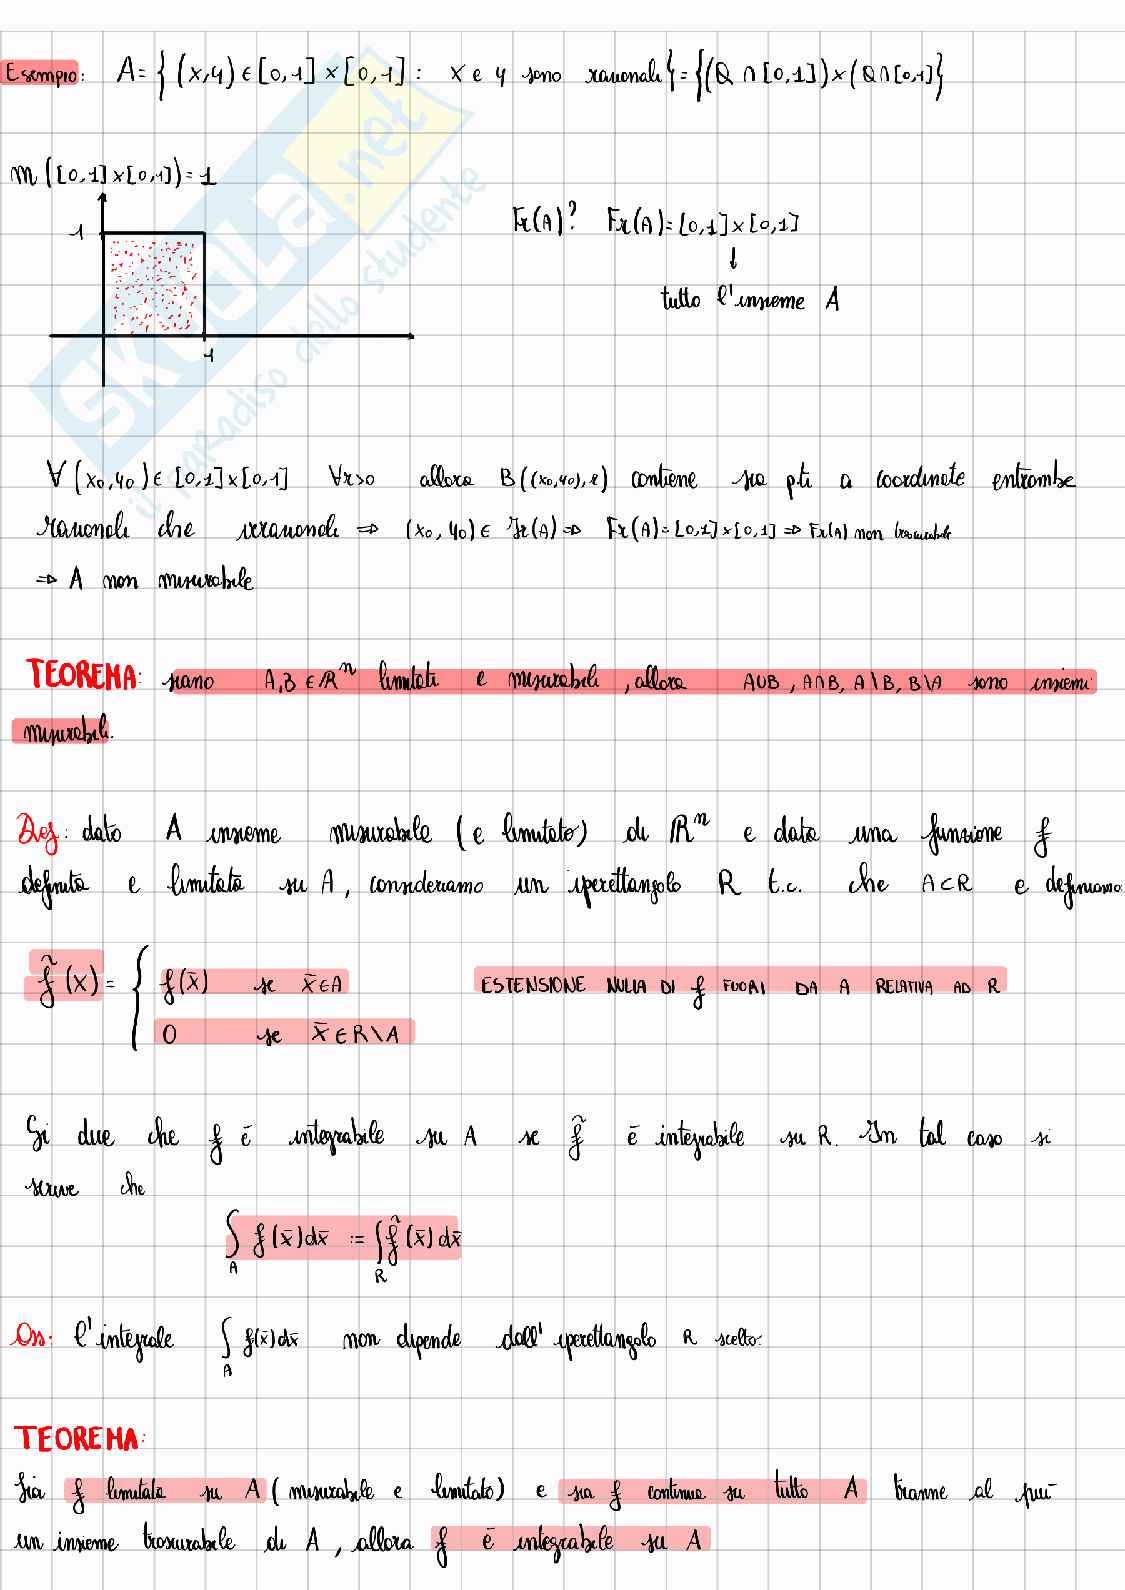 Esempio: A = { (x,y) ∈ [0,1] × [0,1] : x e y sono razionali } = {(Q ∩ [0,1]) × (Q ∩ [0,1]}
m ([0,1] × [0,1]) = 1
1
Fr(A)? Fr(A) = [0,1] × [0,1]
↓
tutto l'insieme A
1
SKUOLA.net
il paradiso dello studente
∀ (x0, y0) ∈ [0,1] × [0,1] ∀r>0 allora B((x0,y0), r) contiene sia pti a coordinate entrambe
razionali che irrazionali ⇒ (x0, y0) ∈ Fr(A) ⇒ Fr(A) = [0,1] × [0,1] ⇒ Fr(A) non trascurabile
⇒ A non misurabile
TEOREMA: siano A,B ∈ R^n limitati e misurabili, allora A∪B, A∩B, A\B, B\A sono insiemi
misurabili.
Def: dato A insieme misurabile (e limitato) di R^n e data una funzione f
definita e limitata su A, consideriamo un iperettangolo R t.c. che A⊂R e definiamo:
f̃(x) = { f(x̄) se x̄∈A ESTENSIONE NULLA DI f FUORI DA A RELATIVA AD R
0 se x̄ ∈ R\A
Si dice che f è integrabile su A se f̃ è integrabile su R. In tal caso si
scrive che
∫_A f(x̄)dx̄ := ∫_R f̃(x̄)dx̄
Oss: l'integrale ∫_A f(x̄)dx̄ non dipende dall'iperettangolo R scelto.
TEOREMA:
Sia f limitata su A (misurabile e limitato) e sia f continua su tutto A tranne al più
un insieme trascurabile di A, allora f è integrabile su A